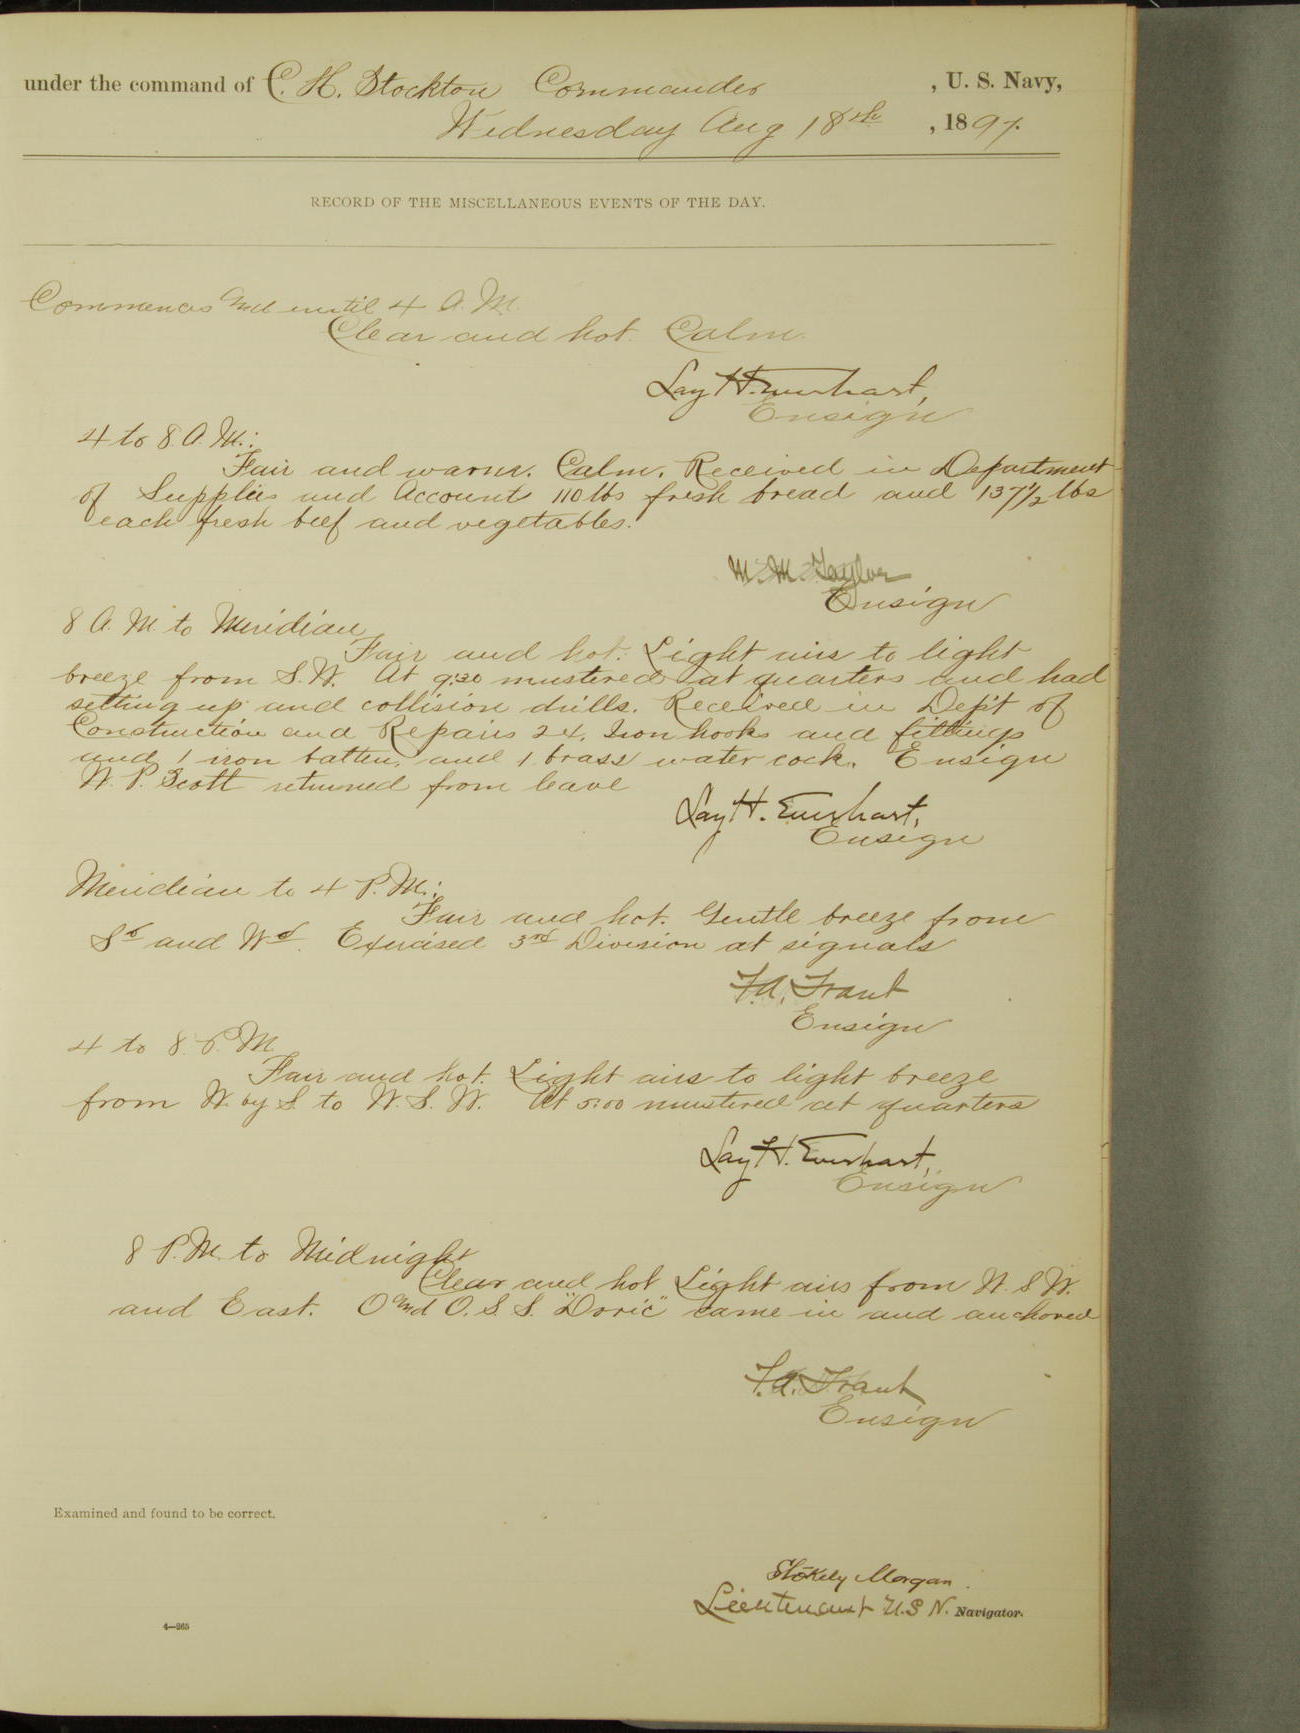 under the command of C. H. Stockton Commander , U. S. Navy,
Wednesday Aug 18th , 1897.
RECORD OF THE MISCELLANEOUS EVENTS OF THE DAY.
Commences and until 4 A. M.
Clear and hot. Calm.
Lay H. Everhart,
Ensign
4 to 8 A. M.:
Fair and warm. Calm. Received in Department
of Supplies and Accounts 110 lbs fresh bread and 137 1/2 lbs
each fresh beef and vegetables.
M. M. Taylor
Ensign
8 A. M. to Meridian
Fair and hot. Light airs to light
breeze from S. W. At 9:30 mustered at quarters and had
setting up and collision drills. Received in Dep't of
Construction and Repairs 24. Iron hooks and fittings
and 1 iron batten, and 1 brass water cock. Ensign
W. P. Scott returned from leave
Lay H. Everhart,
Ensign
Meridian to 4 P. M.:
Fair and hot. Gentle breeze from
Sd and Wd. Exercised 3rd Division at signals
F. A. Traut
Ensign
4 to 8. P. M.
Fair and hot. Light airs to light breeze
from W. by S. to W. S. W. At 5:00 mustered at quarters
Lay H. Everhart,
Ensign
8 P. M. to Midnight
Clear and hot Light airs from W. S. W.
and East. O and O. S. S. "Doric" came in and anchored
F. A. Traut
Ensign
Examined and found to be correct.
Stokely Morgan.
Lieutenant U. S N. Navigator.
4—265